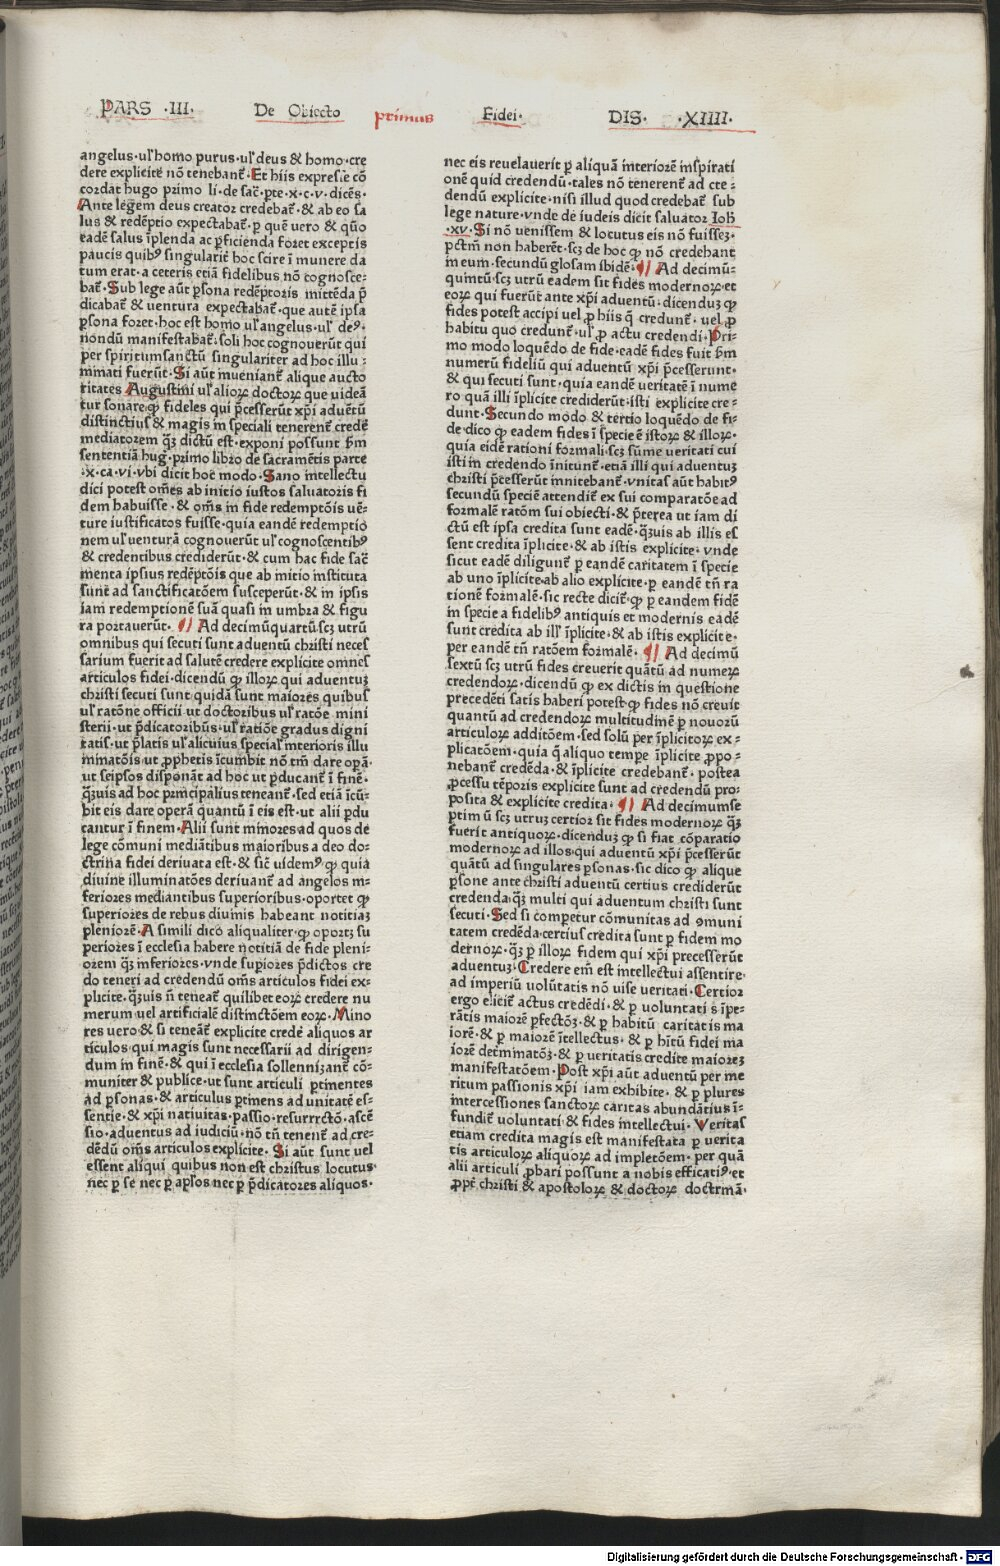 PARS ·III· De Obiecto primus Fidei· DIS· ·XIIII·
angelus·ul̕ homo purus·ul̕ deus & homo·cre
dere explicite nō tenebant̄·Et hiis expresse cō
cordat hugo primo li·de sac̄·p̄te·x·c·v·dicēs·
Ante legem deus creator credebat̄·& ab eo sa
lus & redēptio expectabat̄·ꝑ quē uero & quō
eadē salus īplenda ac ꝑficienda foret exceptis
paucis quibꝰ singularit̄ hoc scire ī munere da
tum erat·a ceteris etiā fidelibus nō cognosce-
bat̄·Sub lege aūt ꝑsona redēptoris mittēda p̄
dicabat̄ & uentura expectabat̄·que autē ipsa
ꝑsona foret·hoc est homo ul̕ angelus·ul̕ deꝰ·
nondū manifestabat̄·soli hoc cognouerūt qui
per spiritumsanctū singulariter ad hoc illu :
minati fuerūt·Si aūt inueniant̄ alique aucto
ritates Augustini ul̕ alioꝝ doctoꝝ que uideā
tur sonare ꝙ fideles qui p̄cesserūt xp̄i aduētū
distinctius & magis in speciali tenerent̄ credē
mediatorem q̄ꝫ dictū est·exponi possunt ẜm
sententiā hug̕·primo libro de sacramētis parte
·x·ca·vi·vbi dicit hoc modo·Sano intellectu
dici potest om̄es ab initio iustos saluatoris fi
dem habuisse·& om̄s in fide redemptōis uē-
ture iustificatos fuisse·quia eandē redemptio
nem ul̕ uenturā cognouerūt ul̕ cognoscentibꝰ
& credentibus crediderūt·& cum hac fide sac̄
menta ipsius redēptōis que ab initio instituta
sunt ad sanctificatōem susceperūt·& in ipsis
iam redemptionē suā quasi in umbra & figu
ra portauerūt· ¶ Ad decimūquartū·scꝫ utrū
omnibus qui secuti sunt aduentū christi neces
sarium fuerit ad salutē credere explicite omnes
articulos fidei·dicendū ꝙ illoꝝ qui aduentuꝫ
christi secuti sunt quidā sunt maiores quibus
ul̕ ratōne officii ut doctoribus ul̕ ratōe mini
sterii·ut p̄dicatoribus·ul̕ ratiōe gradus digni
tatis·ut p̄latis ul̕ alicuius special̕ interioris illu
minatōis ut ꝓphetis īcumbit nō tm̄ dare operā·
ut seipsos disponāt ad hoc ut ꝑducant̄ ī finē·
q̄ꝫuis ad hoc principalius teneant̄·sed etiā īcū-
bit eis dare operā quantū ī eis est·ut alii ꝑdu
cantur ī finem·Alii sunt minores ad quos de
lege cōmuni mediātibus maioribus a deo do-
ctrina fidei deriuata est·& sic̄ uidemꝰ ꝙ quia
diuine illuminatōes deriuant̄ ad angelos in-
feriores mediantibus superioribus·oportet ꝙ
superiores de rebus diuinis habeant notitiaꝫ
pleniorē·A simili dico aliqualiter·ꝙ oportꝫ su
periores ī ecclesia habere notitiā de fide pleni-
orem q̄ꝫ inferiores·vnde supiores p̄dictos cre
do teneri ad credendū om̄s articulos fidei ex-
plicite·q̄ꝫuis n̄ teneat̄ quilibet eoꝝ credere nu
merum uel artificialē distinctōem eoꝝ·Mino
res uero & si teneāt̄ explicite credē aliquos ar
ticulos·qui magis sunt necessarii ad dirigen-
dum in finē·& qui ī ecclesia sollennizant̄ cō-
muniter & publice·ut sunt articuli ꝑtinentes
ad ꝑsonas·& articulus ꝑtinens ad unitatē es-
sentie·& xp̄i natiuitas·passio·resurrrctō·ascē
sio·aduentus ad iudiciū·nō tn̄ tenent̄ ad cre-
dēdū om̄s articulos explicite· Si aūt sunt uel
essent aliqui quibus non est christus locutus·
nec ꝑ se nec ꝑ aplōs nec ꝑ p̄dicatores aliquos·
nec eis reuelauerit ꝑ aliquā interiorē inspirati
onē quid credendū·tales nō tenerent̄ ad cre -
dendū explicite·nisi illud quod credebat̄ sub
lege nature·vnde de iudeis dicit saluator Ioh̄
·xv·Si nō uenissem & locutus eis nō fuisseꝫ·
pctm̄ non haberēt·scꝫ de hoc ꝙ nō credebant
in eum·secundū glosam ibidē· ¶ Ad decimū-
quintū·scꝫ utrū eadem sit fides modernoꝝ·et
eoꝝ qui fuerūt ante xp̄i aduentū·dicenduꝫ ꝙ
fides potest accipi uel ꝓ hiis q̄ credunt̄· uel ꝓ
habitu quo credunt̄·ul̕ ꝓ actu credendi·Pri-
mo modo loquēdo de fide·eadē fides fuit ẜm
numerū fideliū qui aduentū xp̄i p̄cesserunt·
& qui secuti sunt·quia eandē ueritatē ī nume
ro quā illi īplicite crediderūt·isti explicite cre-
dunt·Secundo modo & tertio loquēdo de fi-
de·dico ꝙ eadem fides ī specie ē istoꝝ & illoꝝ·
quia eidē rationi formali·scꝫ sūme ueritati cui
isti in credendo īnitunt̄·etiā illi qui aduentuꝫ
christi p̄cesserūt innitebant̄·vnitas aūt habitꝰ
secundū speciē attendit̄ ex sui comparatōe ad
formalē ratōm sui obiecti·& p̄terea ut iam di
ctū est ipsa credita sunt eadē·q̄ꝫuis ab illis es
sent credita īplicite·& ab istis explicite· vnde
sicut eadē diligunt̄ ꝑ eandē caritatem ī specie
ab uno īplicite·ab alio explicite·ꝑ eandē tn̄ ra
tionē formalē·sic recte dicit̄·ꝙ ꝑ eandem fidē
in specie a fidelibꝰ antiquis et modernis eadē
sunt credita ab ill̕ īplicite·& ab istis explicite·
per eandē tn̄ ratōem formalē· ¶ Ad decimū
sextū scꝫ utrū fides creuerit quātū ad numeꝝ
credendoꝝ·dicendū ꝙ ex dictis in questione
precedēti satis haberi potest·ꝙ fides nō creuit
quantū ad credendoꝝ multitudinē ꝑ nouorū
articuloꝝ additōem·sed solū per īplicitoꝝ ex -
plicatōem·quia q̄ aliquo tempe īplicite ꝓpo-
nebant̄ credēda·& īplicite credebant̄· postea
ꝓcessu tēporis explicite sunt ad credendū pro-
posita & explicite credita· ¶ Ad decimumse
ptimū scꝫ utruꝫ certior sit fides modernoꝝ q̄ꝫ
fuerit antiquoꝝ·dicenduꝫ ꝙ si fiat cōparatio
modernoꝝ ad illos·qui aduentū xp̄i p̄cesserūt
quātū ad singulares ꝑsonas·sic dico ꝙ alique
ꝑsone ante christi aduentū certius crediderūt
credenda·q̄ꝫ multi qui aduentum christi sunt
secuti·Sed si competur cōmunitas ad ꝯmuni
tatem credēda·certius credita sunt ꝑ fidem mo
dernoꝝ·q̄ꝫ ꝑ illoꝝ fidem qui xp̄i precesserūt
aduentuꝫ·Credere em̄ est intellectui assentire·
ad imperiū uolūtatis nō uise ueritati·Certior
ergo elicit̄ actus credēdi·& ꝑ voluntati s̄ īpe-
rātis maiorē ꝑfectōꝫ·& ꝑ habitū caritatis ma
iorē·& ꝑ maiorē ītellectus·& ꝑ hītū fidei ma
iorē det̄minatōꝫ·& ꝑ ueritatis credite maioreꝫ
manifestatōem·Post xp̄i aūt aduentū per me
ritum passionis xp̄i iam exhibite·& ꝑ plures
intercessiones sanctoꝝ caritas abundātius ī-
fundit̄ uoluntati·& fides intellectui·Veritas
etiam credita magis est manifestata ꝑ uerita
tis articuloꝝ aliquoꝝ ad impletōem·per quā
alii articuli ꝓbari possunt a nobis efficatiꝰ·et
ꝓpt̄ christi & apostoloꝝ & doctoꝝ doctrinā·
Digitalisierung gefördert durch die Deutsche Forschungsgemeinschaft · DFG